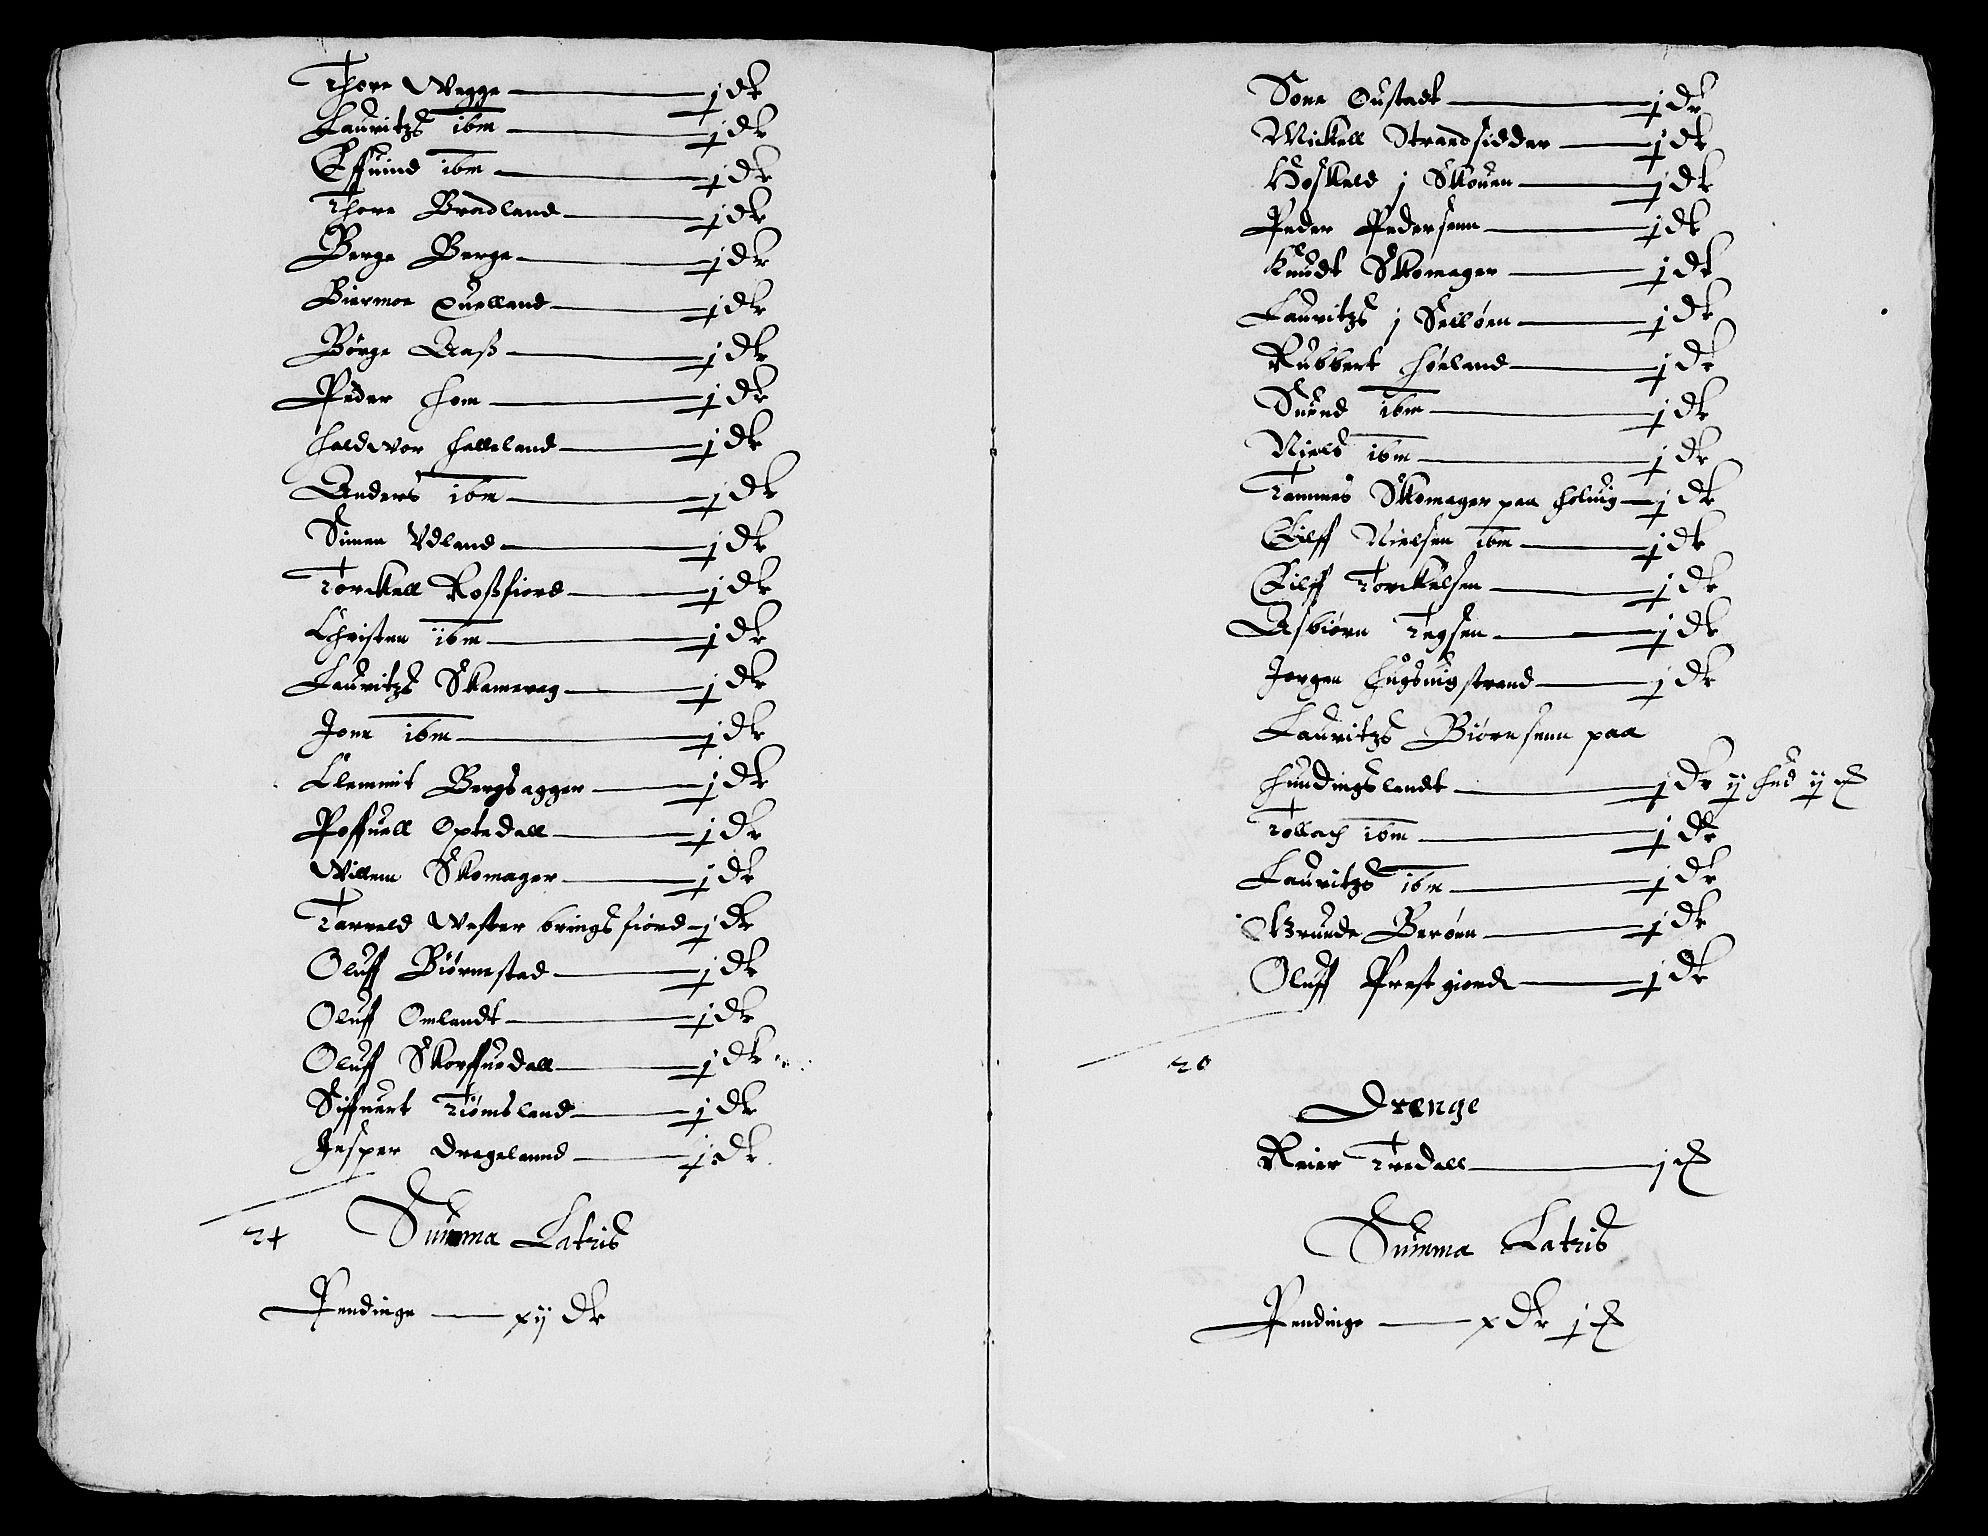 Thore Wegge — j dr
Lauritzs ibm — j dr
Effuind ibm — j dr
Thore Bradland — j dr
Berge Berge — j dr
Biermoe Quelland — j dr
Börge Aaß — j dr
Peder Hom — j dr
Haldwor Helleland — j dr
Anders ibm — j dr
Simen Vdland — j dr
Torckell Roßfiord — j dr
Christen ibm — j dr
Lauritzs Skamereg — j dr
Jonn ibm — j dr
Clemmit Bergsagger — j dr
Poffuell Optedall — j dr
Willem Skomager — j dr
Tarreld Wester bringsfiord — j dr
Oluff Biörnestad — j dr
Oluff Omlandt — j dr
Oluff Skoffuedall — j dr
Siffuert Tiömsland — j dr
Jesper Dragelannd — j dr
24 Summa Latris
Pendinge — xij dr
Sone Oustadt — j dr
Mickell Strandsidder — j dr
Hoskeld j Skouen — j dr
Peder Pedersenn — j dr
Knudt Skomager — j dr
Lauritzs j Selöen — j dr
Rubbert Höeland — j dr
Suend ibm — j dr
Niels ibm — j dr
Tammes Skomager paa Heluig — j dr
Eilff Nielsen ibm — j dr
Eilff Torckelsen — j dr
Asbiörn Tegsen — j dr
Jorgen Hugsuigstrand — j dr
Lauritzs Biörnsenn paa
Hundingslandt — j dr ij hud ij
Tollach ibm — j dr
Lauritzs ibm — j dr
Gunde Beröen — j dr
Oluff Prestgiord — j dr
20
Drenge
Reier Tredall — j
Summa Latris
Pendinge — x dr j